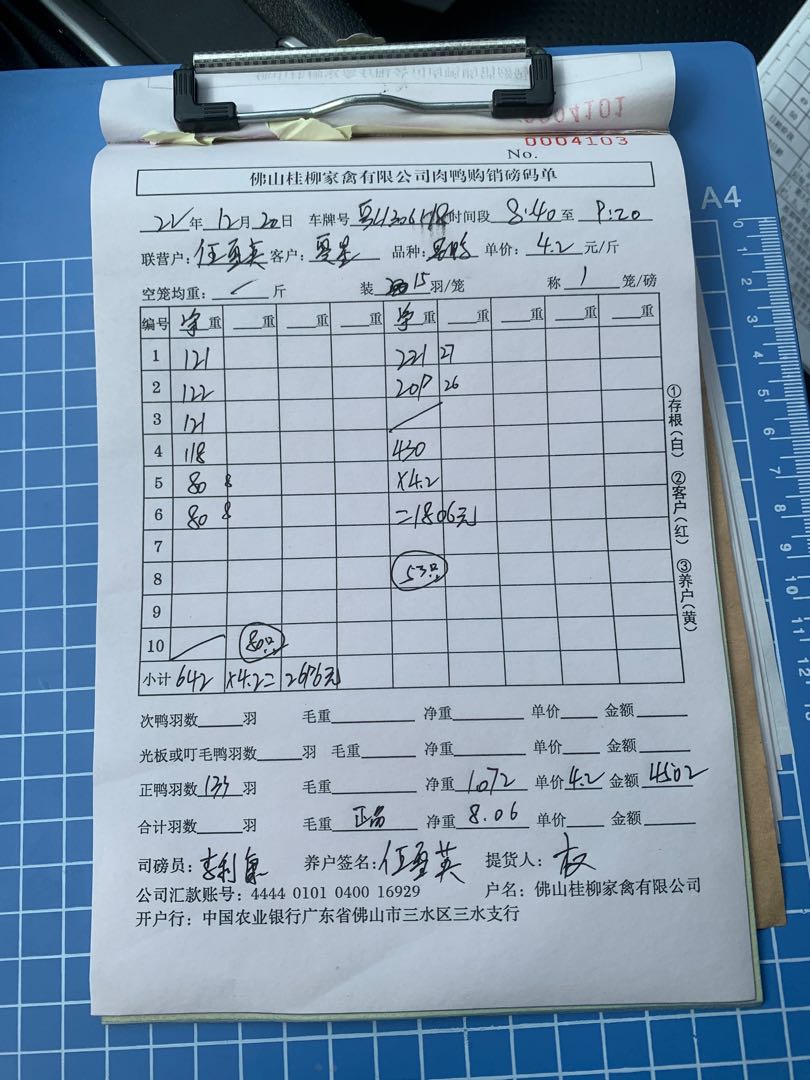 0004101
0004103
No.
佛山桂柳家禽有限公司肉鸭购销磅码单
22年 12月 20日 车牌号 时间段 8:40 至 9:20
联营户: 任 英 客户: 品种: 单价: 4.2 元/斤
空笼均重: 斤 装 15 羽/笼 称 1 笼/磅
编号 净重 重 重 重 净重 重 重 重 重
1 121 221 27
2 122 209 26
3 121
4 118 430
5 80 8 ×4.2
6 80 8 =1806元
7
8 53只
9
10 80只
小计 642 ×4.2= 2696元
次鸭羽数 羽 毛重 净重 单价 金额
光板或叮毛鸭羽数 羽 毛重 净重 单价 金额
正鸭羽数 133 羽 毛重 净重 1072 单价 4.2 金额 4502
合计羽数 羽 毛重 正品 净重 8.06 单价 金额
司磅员: 李利 养户签名: 任 英 提货人: 权
公司汇款账号: 4444 0101 0400 16929 户名: 佛山桂柳家禽有限公司
开户行: 中国农业银行广东省佛山市三水区三水支行
①存根(白) ②客户(红) ③养户(黄)
A4
0 1 2 3 4 5 6 7 8 9 10 11 12